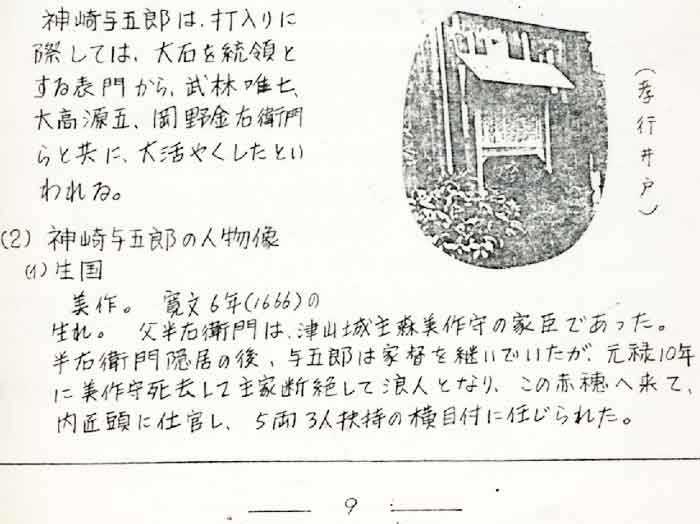 神崎与五郎は、打入りに
際しては、大石を統領と
する表門から、武林唯七、
大高源五、岡野金右衛門
らと共に、大活やくしたとい
われる。
(孝行井戸)
(2) 神崎与五郎の人物像
(1) 生国
美作。 寛文6年(1666)の
生れ。 父半右衛門は、津山城主森美作守の家臣であった。
半右衛門隠居の後、与五郎は家督を継いでいたが、元禄10年
に美作守死去して主家断絶して浪人となり、この赤穂へ来て、
内匠頭に仕官し、5両3人扶持の横目付に任じられた。
9